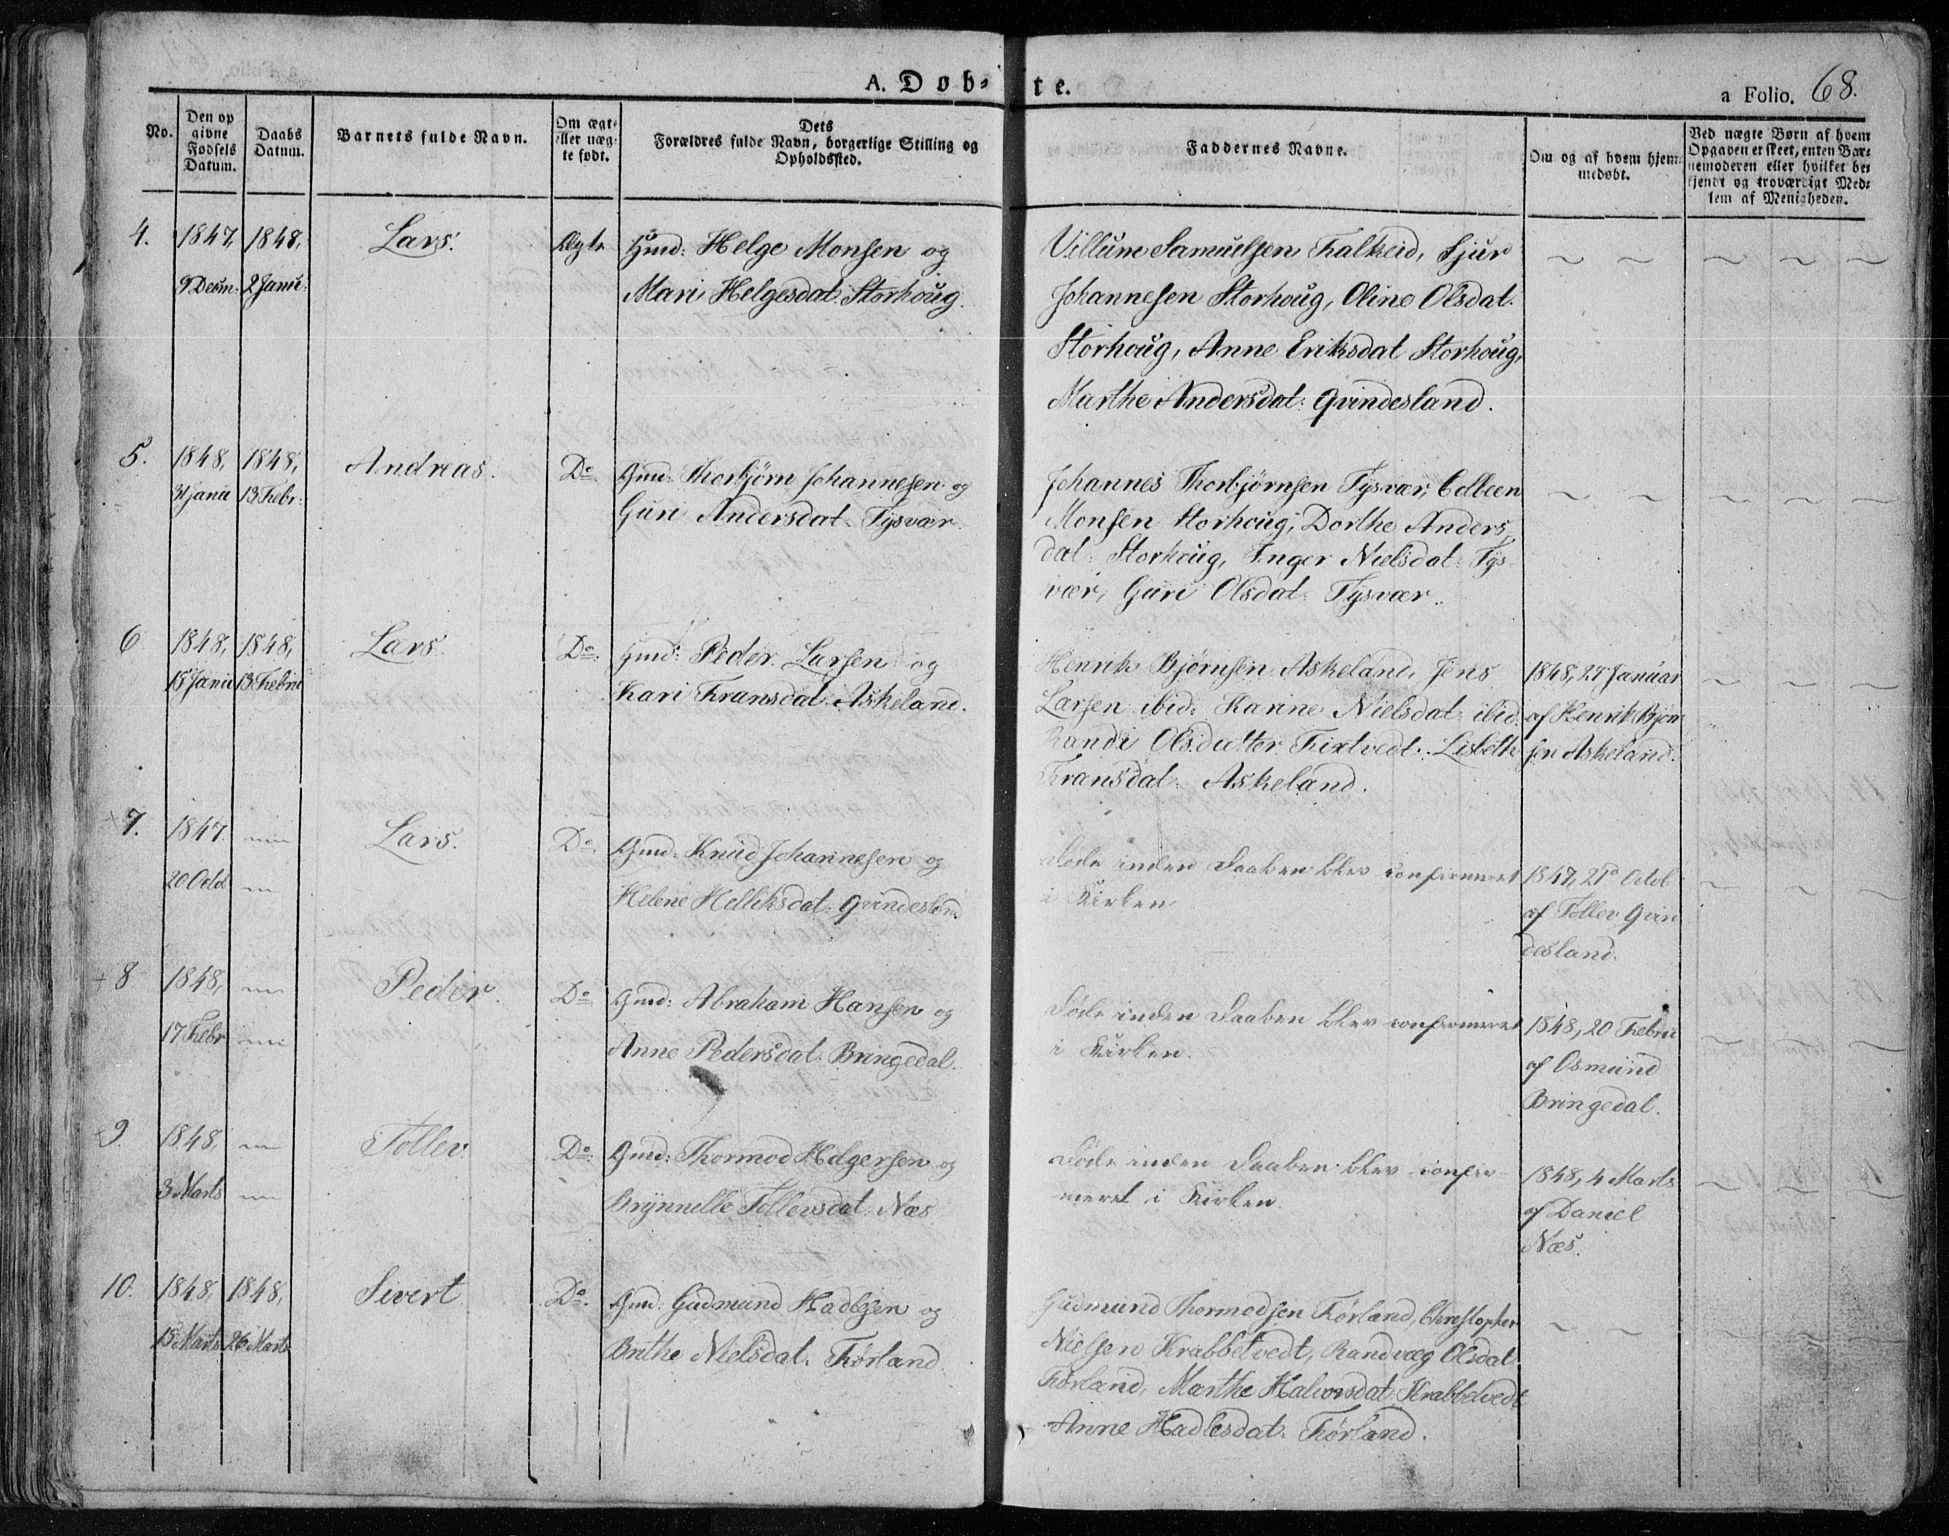 A. Døb-
te.
a Folio. 68.
No.
Den op
givne
Fødsels
Datum.
Daabs
Datum.
Barnets fulde Navn.
Om ægte
eller uæg-
te født.
Dets
Forældres fulde Navn, borgerlige Stilling og
Opholdssted.
Faddernes Navne.
Om og af hvem hjem-
medøbt.
Ved uægte Børn af hvem
Opgaven er skeet, enten Bar-
nemoderen eller hvilket be-
kjendt og troværdigt Med-
lem af Menigheden.
4. 1847, 1848, Lars. Ægte Gmd: Helge Monsen og
9 Decem: 2 Janu: Mari Helgesdat: Storhoug.
Villum Samuelsen Falkeid, Sjur
Johannesen Storhoug, Oline Olsdat:
Storhoug, Anne Eriksdat Storhoug,
Marthe Andersdat: Qvindesland.
5. 1848, 1848, Andreas. Do Gmd: Thorbjørn Johannesen og
31 Janu 13 Febr: Guri Andersdat: Tysvær.
Johannes Thorbjørnsen Tysvær, Edleen
Monsen Storhoug, Dorthe Anders
dat: Storhoug, Inger Nielsdat: Tys-
vær, Guri Olsdat: Tysvær.
6 1848, 1848, Lars. Do. Gmd: Peder Larsen og
15 Janu 13 Febru Kari Fransdat: Askeland.
Henrik Bjørnsen Askeland, Jens
Larsen ibid: Karine Nielsdat: ibid
Randi Olsdatter Fixtvedt. Lisbeth
Fransdat: Askeland.
1848, 27 Januar
af Henrik Bjørn
sen Askeland.
+7. 1847. Lars. Do. Gmd: Knud Johannesen og
20 Octol Helene Helliksdat: Qvindesland
Døde inden Daaben blev confirmeret
i Kirken
1847, 21d Octob
af Tollev Qvin
desland.
+8 1848, Peder. Do. Gmd: Abraham Hansen og
17 Febr Anne Pedersdat: Bringedal.
Døde inden Daaben blev confirmeret
i Kirken.
1848, 20 Febru
af Osmund
Bringedal.
+9. 1848, Tollev Do: Gmd: Thormod Helgersen og
3 Marts Brynnelle Tollevsdat: Næs
Døde inden Daaben blev confir-
meret i Kirken.
1848, 4 Marts
af Daniel
Næs.
10. 1848, 1848, Sivert Do. Gmd: Gudmund Hadlesen og
15 Marts 26 Marts Brithe Nielsdat: Førland.
Gudmund Thormodsen Førland, Christopher
Nielsen Krabbetvedt, Randvæg Olsdat:
Førland, Marthe Halvorsdat: Krabbetvedt
Anne Hadlesdat: Førland.